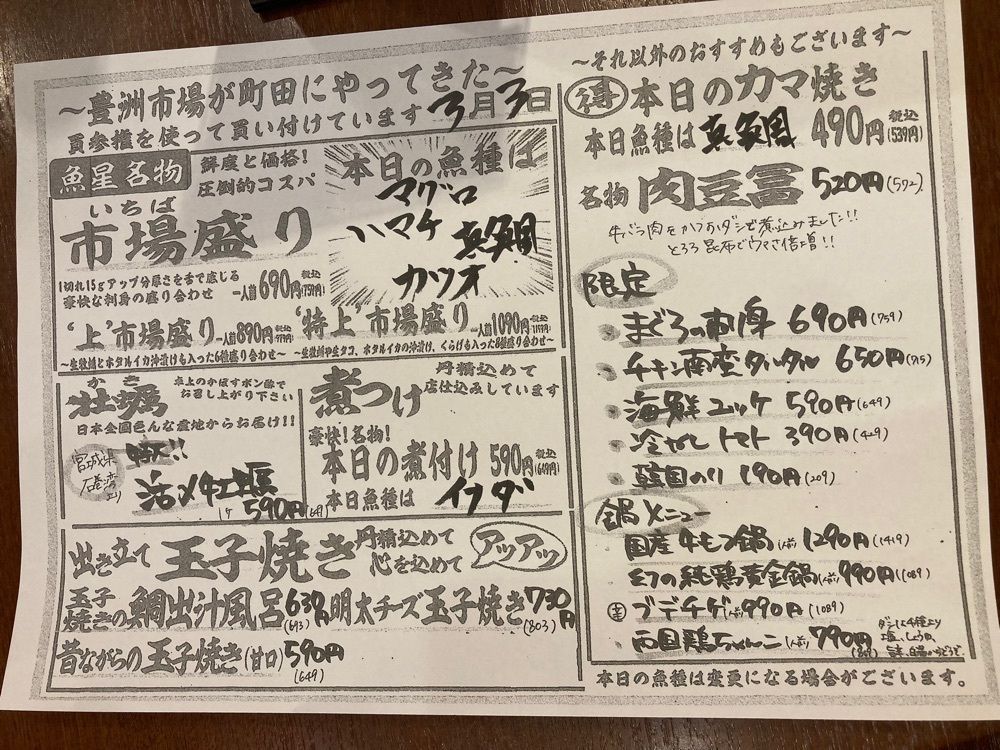 ～豊洲市場が町田にやってきた～
買参権を使って買い付けています 3月3日
魚星名物
鮮度と価格!
圧倒的コスパ
いちば
市場盛り
1切れ15gアップ分厚さを舌で感じる
豪快な刺身の盛り合わせ
一人前690円税込(759円)
本日の魚種は
マグロ
ハマチ 真鯛
カツオ
'上'市場盛り 一人前890円税込
'特上'市場盛り 一人前1090円税込
～生牡蠣とホタルイカ沖漬けも入った6種盛り合わせ～
～生牡蠣や生タコ、ホタルイカの沖漬け、くらげも入った8種盛り合わせ～
かき
牡蠣
卓上のかぼすポン酢で
お召し上がり下さい
日本全国色んな産地からお届け!!
宮城県
石巻湾より
活〆牡蠣
1ケ590円(649)
煮つけ
丹精込めて
店仕込みしています
豪快!名物!
本日の煮付け 590円税込(649円)
本日魚種は イナダ
出き立て 玉子焼き
丹精込めて
心を込めて
アツアツ
玉子焼きの鯛出汁風呂 630円(693)
明太チーズ玉子焼き 730円(803)
昔ながらの玉子焼き(甘口) 590円(649)
～それ以外のおすすめもございます～
得 本日のカマ焼き
本日魚種は 真鯛 490円税込(539円)
名物 肉豆冨 520円(572)
牛バラ肉をかつおダシで煮込みました!!
とろろ昆布でウマさ倍増!!
限定
まぐろの刺身 690円(759)
チキン南蛮タルタル 650円(715)
海鮮ユッケ 590円(649)
冷やしトマト 390円(429)
韓国のり 190円(209)
鍋メニュー
国産牛もつ鍋(一人前) 1290円(1419)
純鶏黄金鍋(一人前) 990円(1089)
辛 プデチゲ(一人前) 990円(1089)
両国鶏ちゃんこ(一人前) 790円(869)
ダシは4種より
塩、しょうゆ、
本日の魚種は変更になる場合がございます。